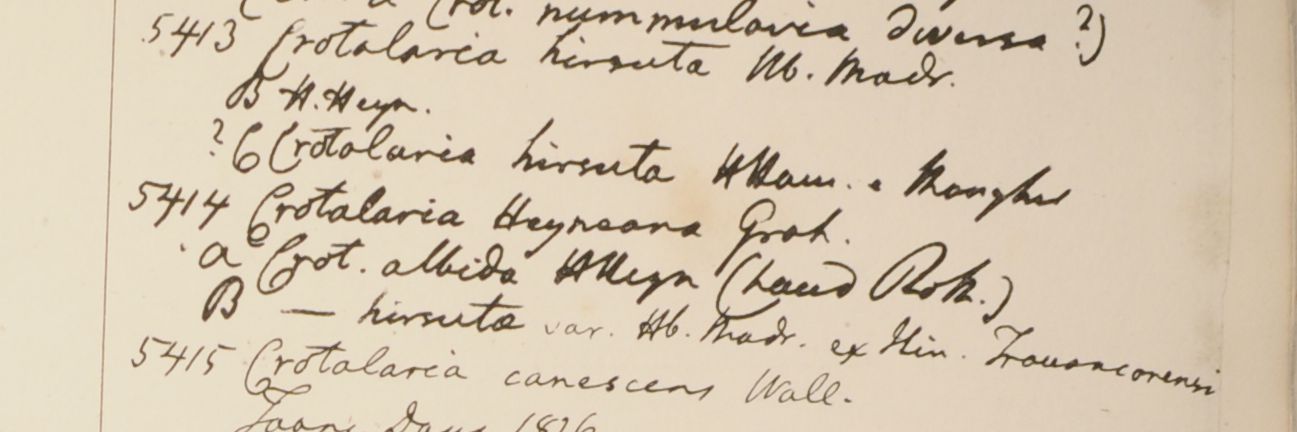 Crot. nummularia diversa ?)
5413 Crotalaria hirsuta Hb. Madr.
B H. Heyn.
? C Crotalaria hirsuta HHam. e Monghir
5414 Crotalaria Heyneana Grah.
a Crot. albida HHeyn (haud Roth.)
B — hirsuta var. Hb. Madr. ex itin. Travancorensi
5415 Crotalaria canescens Wall.
Taong Dong 1826